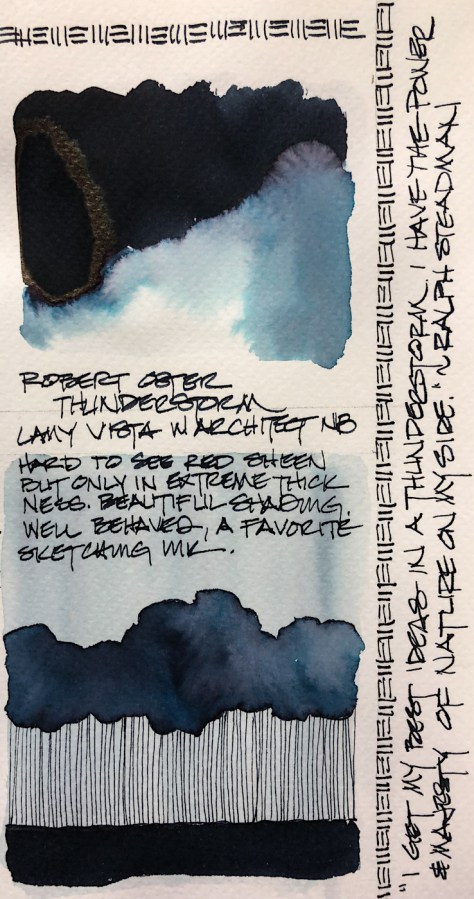 ROBERT OSTER
THUNDERSTORM
LAMY VISTA W ARCHITECT NIB
HARD TO SEE RED SHEEN
BUT ONLY IN EXTREME THICK
NESS. BEAUTIFUL SHADING.
WELL BEHAVED, A FAVORITE
SKETCHING INK.
"I GET MY BEST IDEAS IN A THUNDERSTORM. I HAVE THE POWER
& MAJESTY OF NATURE ON MY SIDE." ~ RALPH STEADMAN